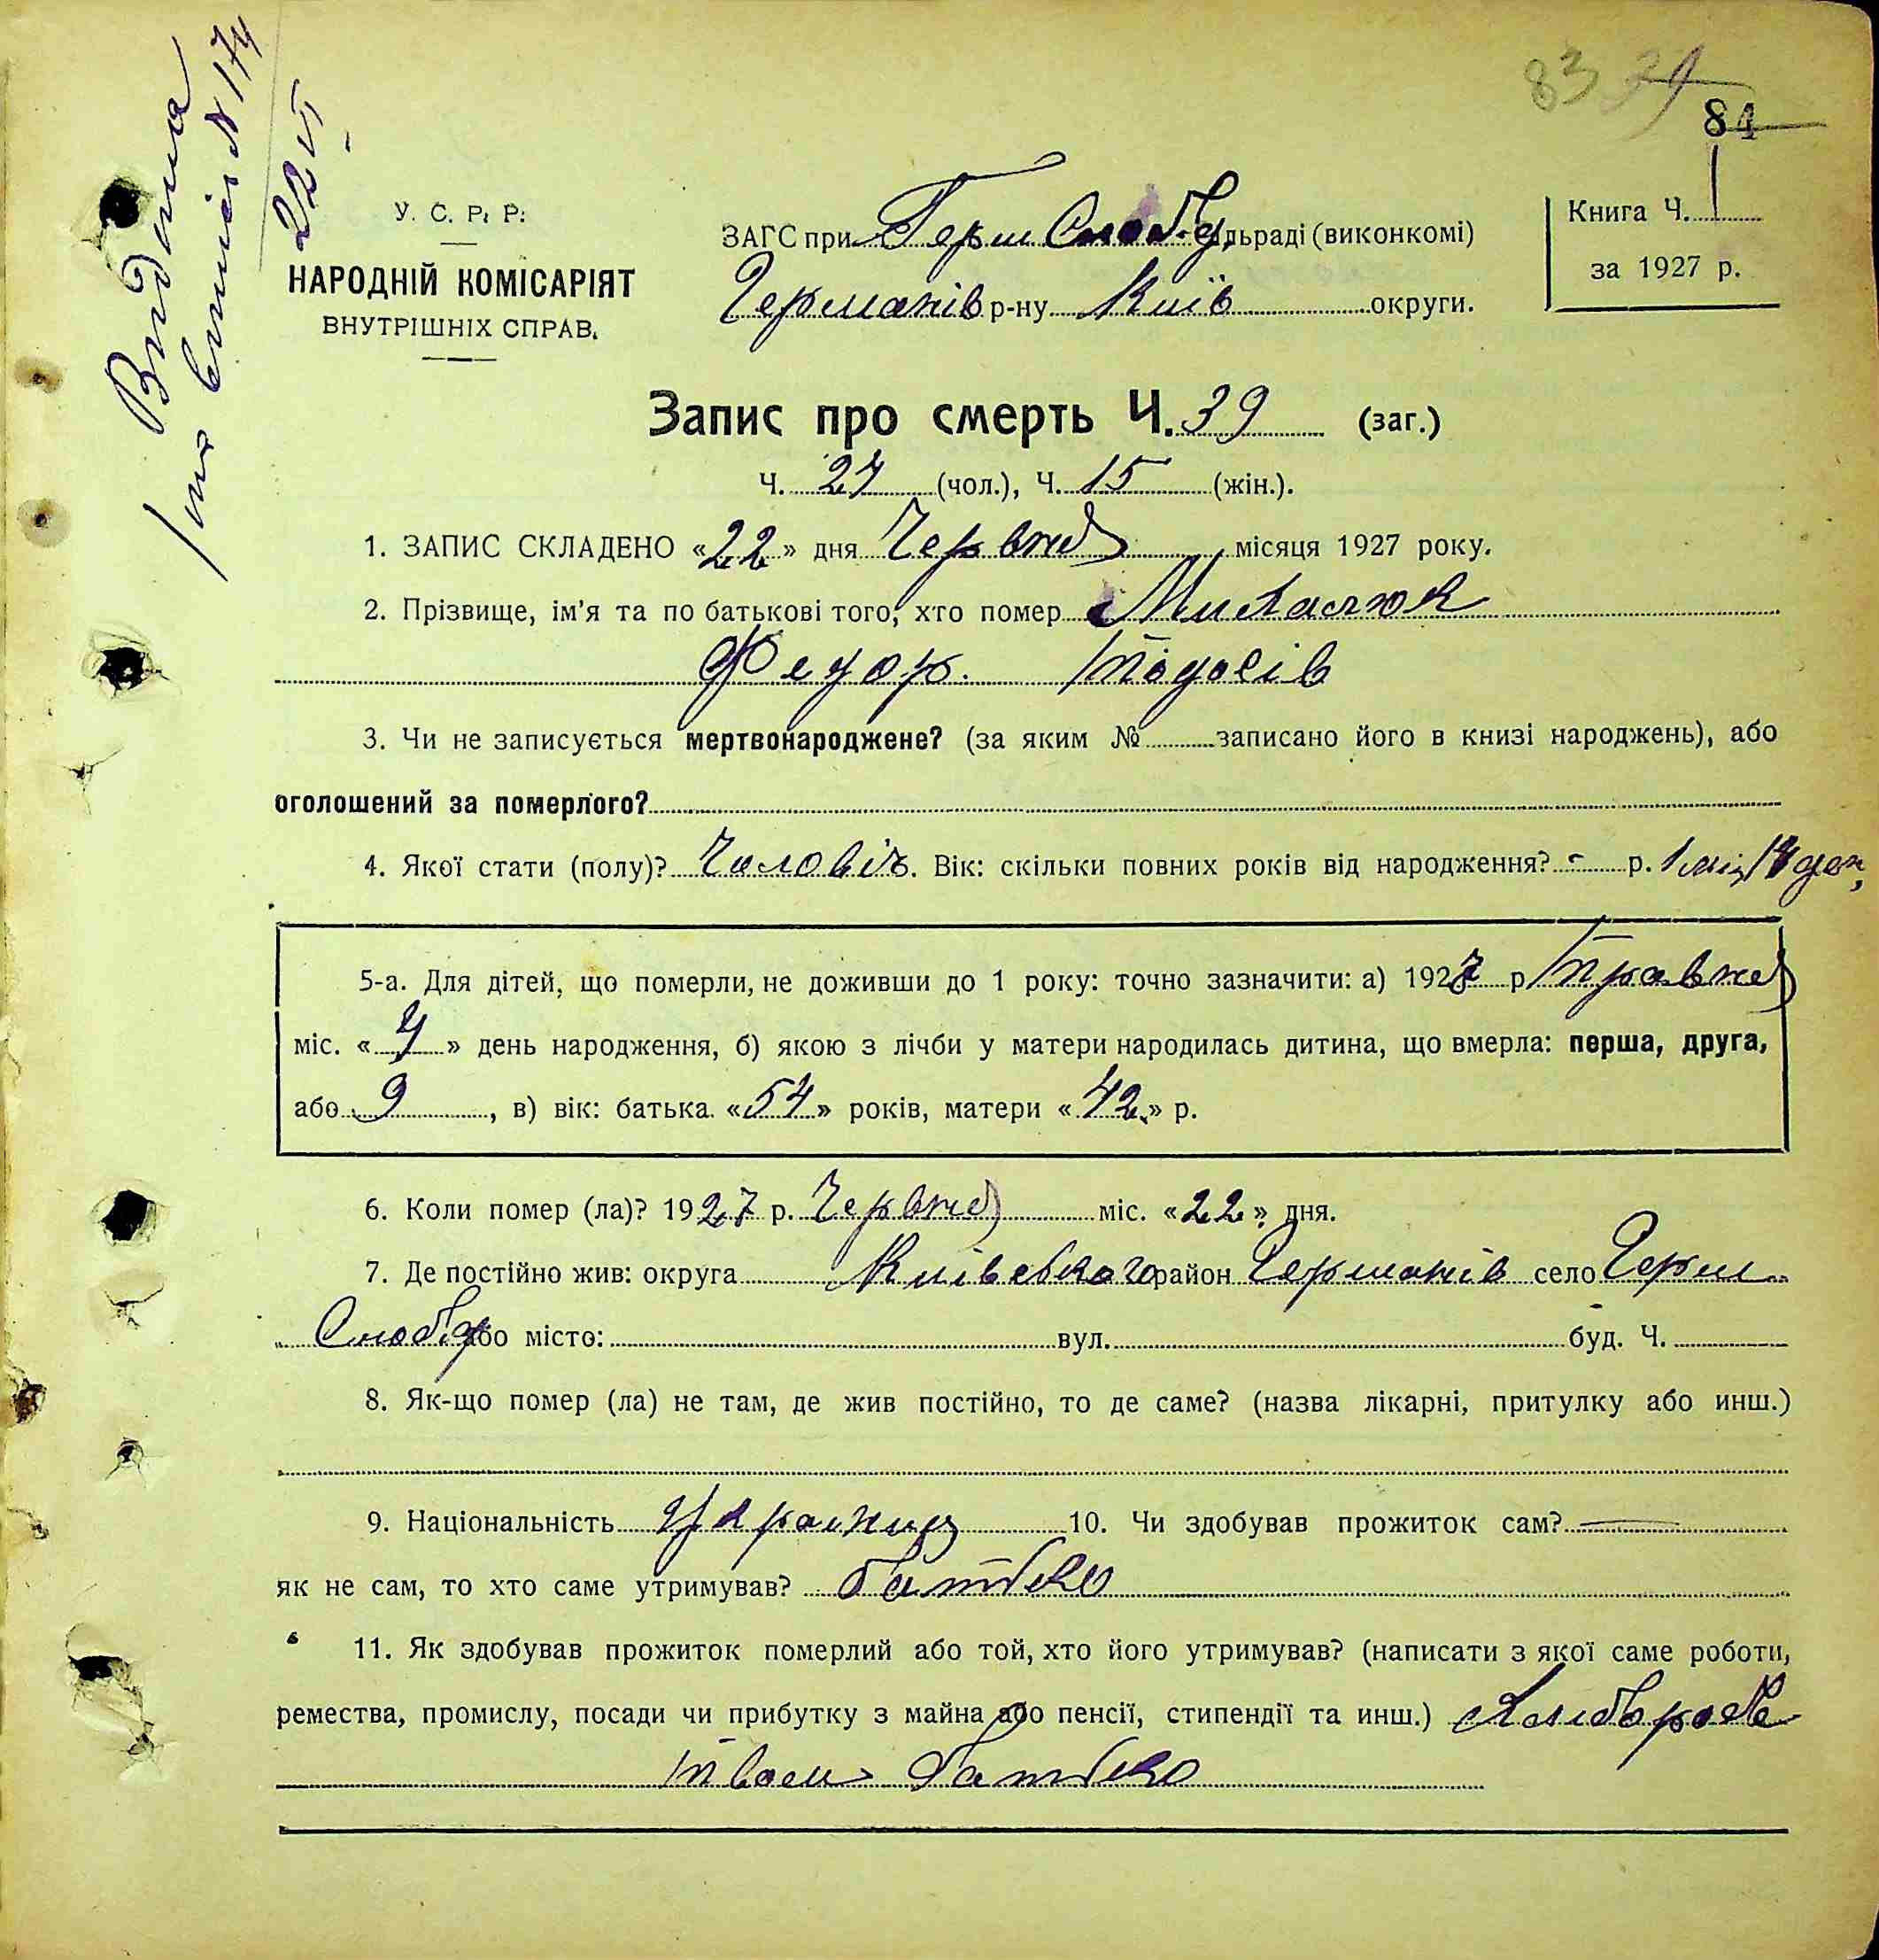 83 39
84
Видана
на витяг N 174
22 VI
У. С. Р. Р.
НАРОДНІЙ КОМІСАРІЯТ
ВНУТРІШНІХ СПРАВ.
ЗАГС при Герм Слобід. сільраді (виконкомі)
Германів р-ну Київ округи.
Книга Ч. 1
за 1927 р.
Запис про смерть Ч. 39 (заг.)
Ч. 24 (чол.), Ч. 15 (жін.).
1. ЗАПИС СКЛАДЕНО «22» дня Червня місяця 1927 року.
2. Прізвище, ім'я та по батькові того, хто помер Михалюк
Федор. Тодосів
3. Чи не записується мертвонароджене? (за яким № записано його в книзі народжень), або
оголошений за померлого?
4. Якої стати (полу)? Чоловіч. Вік: скільки повних років від народження? - р. 1 міц 18 ден,
5-а. Для дітей, що померли, не доживши до 1 року: точно зазначити: а) 1927 р Травня
міс. «4» день народження, б) якою з лічби у матери народилась дитина, що вмерла: перша, друга,
або 9, в) вік: батька «54» років, матери «42» р.
6. Коли помер (ла)? 1927 р. Червня міс. «22» дня.
7. Де постійно жив: округа Київського район Германів село Герм
Слобід або місто: вул. буд. Ч.
8. Як-що помер (ла) не там, де жив постійно, то де саме? (назва лікарні, притулку або инш.)
9. Національність Украинец 10. Чи здобував прожиток сам? —
як не сам, то хто саме утримував? батько
11. Як здобував прожиток померлий або той, хто його утримував? (написати з якої саме роботи,
ремества, промислу, посади чи прибутку з майна або пенсії, стипендії та инш.) Хлібороб
ством батько